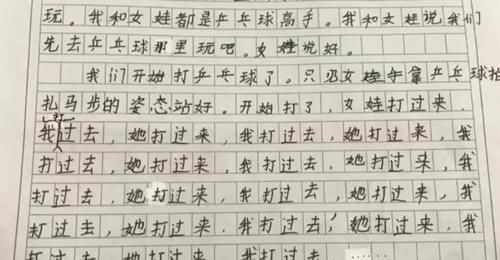 玩。我和女娃都是乒乓球高手。我和女娃说我们
先去乒乓球那里玩吧。女娃说好。
我们开始打乒乓球了。只见女娃手拿乒乓球拍
扎马步的姿态站好。开始打了，女娃打过来，
我打过去，她打过来，我打过去，她打过来，我
打过去，她打过来，我打过去，她打过来，我
打过去，她打过来，我打过去，她打过来，我
打过去，她打过来，我打过去，她打过来，我
打过去，她打过来，我打过去……